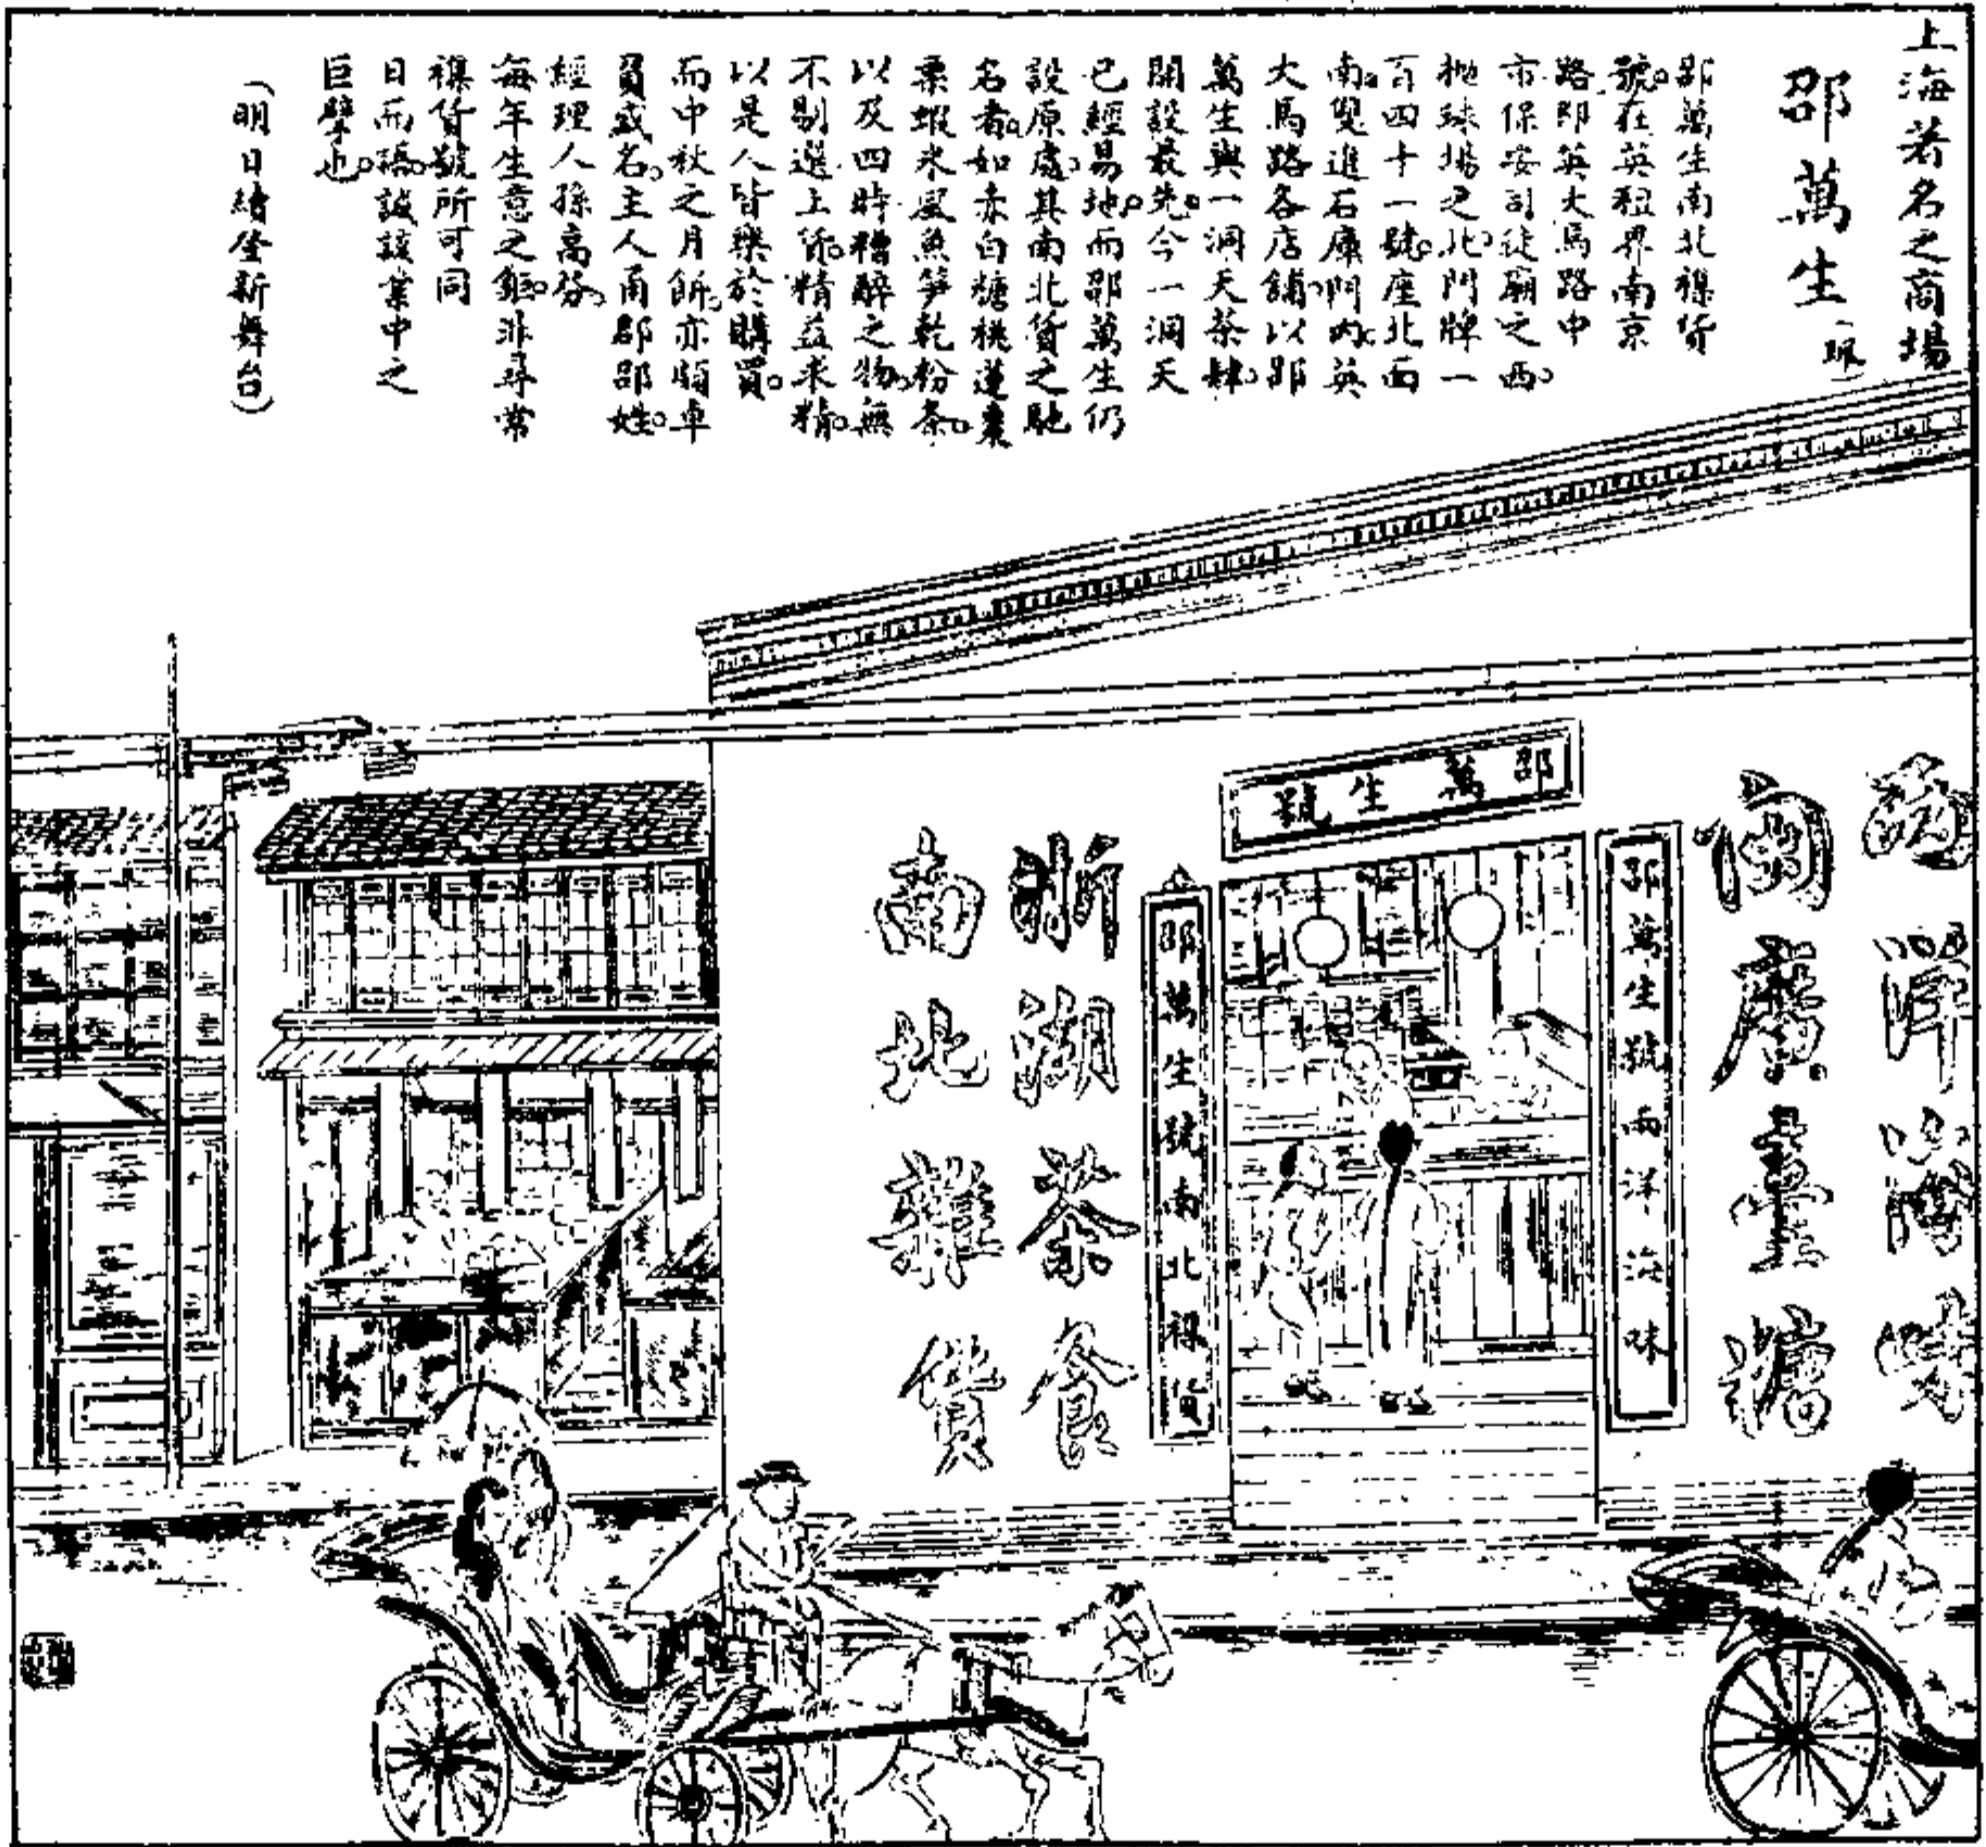 上海著名之商場
邵萬生
邵萬生南北襍貨
號。在英租界南京
路即英大馬路中
市保安司徒廟之西。
抛球場之北。門牌一
百四十一號。座北面
南。雙進石庫門內。英
大馬路各店舖。以邵
萬生與一洞天茶肆。
開設最先。今一洞天
已經易地。而邵萬生仍
設原處。其南北貨之馳
名者。如赤白糖桃蓮棗
栗蝦米風魚笋乾粉条。
以及四時糟醉之物。無
不剔選上𠋣。精益求精。
以是人皆樂於購買。
而中秋之月餅。亦頗卓
負盛名。主人甬郡邵姓。
經理人孫高發。
每年生意之鉅。非尋常
襍貨號所可同
日而語。誠該業中之
巨擘也。
（明日繪登新舞台）
邵萬生號
南洋海味
閩廣臺糖
邵萬生號南洋海味
邵萬生號南北襍貨
浙湖茶食
南北雜貨